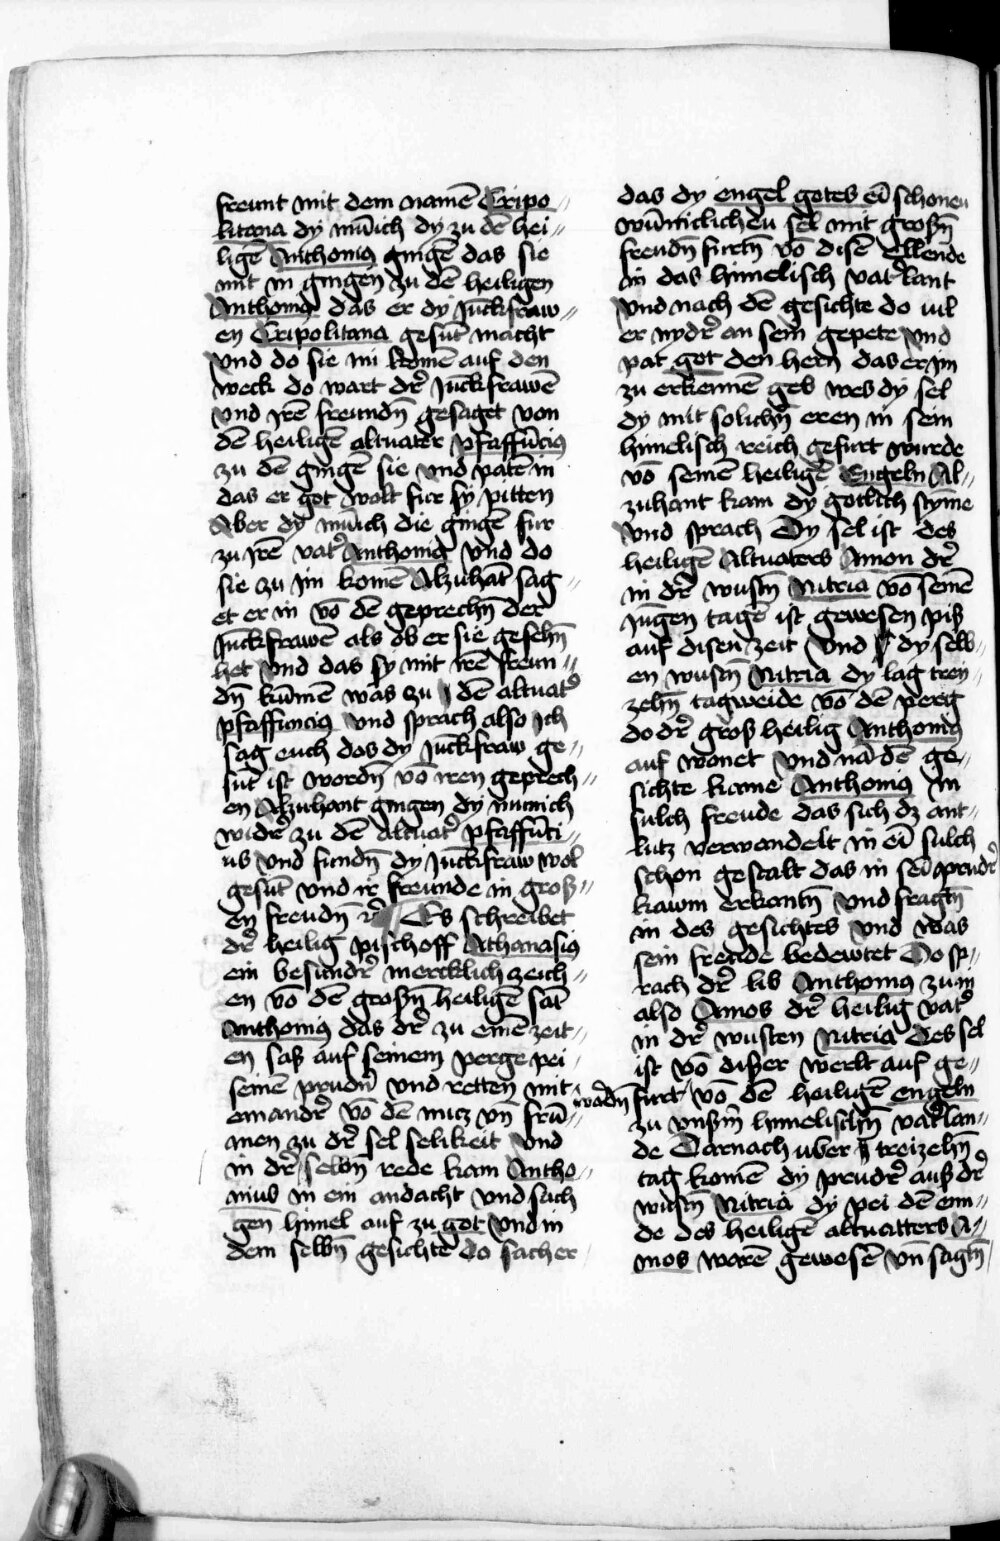 freunt mit dem namē Tripo〃
litana dy mūnich dy zu dē hei〃
ligē Anthoniꝰ gingē das sie
mit in gingen zu dē heiligen
Anthoniꝰ das er dy Jūckfraw〃
en Tripolitana gesūt macht
Vnd do sie nu komē auf den
weck do wart dr̄ Jūckfrawē
Vnd Jrē freundn̄ gesaget von
dē heiligē altuater pfaffūciꝰ
zu dē gingē sie vnd patē in
das er got wolt fur sy pitten
Aber dy mūich die gingē fur
zu Jrē vat̄ Anthoniꝰ Vnd do
sie zu Jm komē Alzuhāt sag〃
et er in vō dē geprechn̄ der
Jūckfrawē als ob er sie gesehn̄
het Vnd das sy mit irē freun〃
dn̄ kūmē was zu dē altuat̄
pfaffunciꝰ Vnd sprach also Jch
sag euch das dy Jūckfraw ge〃
sūt ist wordn̄ vō iren geprech〃
en Alzuhant gingen dy munich
widr̄ zu dē altuat̄ pfaffūci〃
us Vnd fundn̄ dy Jūckfraw wol
gesūt Vnd ir freunde in groß〃
en freudn̄ Es schreibet
dr̄ heilig pischoff Athanasiꝰ
ein besundr̄ mercklich zeich〃
en vō dē großn̄ heiligē sāt
Anthoniꝰ das dr̄ zu einē zeit〃
en saß auf seinem perge pei〃
seinē prudn̄ Vnd retten mit〃
einandr̄ vō dē nutz vn̄ frū〃
men zu dr̄ sel selikeit Vnd
in dr̄ selbn̄ rede kam Antho〃
nius in ein andacht Vnd sach
gen himel auf zu got Vnd in
dem selbn̄ gesichte do sach er
das dy engel gotes ei̅ schonen
wūniclichen sel mit großn̄
freudn̄ furtn̄ vō disē Ellende
in das himelisch vat̄lant
Vnd nach dē gesichte do vil
er nydr̄ an sein gepete Vnd
pat got den hern das er im
zu erkennen geb wes dy sel
dy mit solichn̄ eren in sein
himelisch reich gefurt wurde
vō seinen heiligē Engeln Al〃
zuhant kam dy gotlich styme
Vnd sprach Dy sel ist des
heiligē Altuaters Amon dr̄
in dr̄ wustn̄ Nitria vō seinē
Jūgen tagē ist gewesen piß
auf disen zeit Vnd dy selb〃
en wustn̄ Nitria dy lag trey〃
zehn̄ tagweide vō dē perg
do dr̄ groß heilig Anthoniꝰ
auf wonet Vnd nā dē ge〃
sichte kame Anthoniꝰ in
sulch freude das sich dz ant〃
lutz verwandelt in ei̅ sulch
schon gestalt das in sei̅ prudr̄
kawm erkantn̄ Vnd fragtn̄
in des gesichtes Vnd was
sein freude bedewtet Do sp〃
rach dr̄ lib Anthoniꝰ zu in
also Amos dr̄ heilig vat̄
in dr̄ wusten Nitria des sel
ist vō dißer werlt auf ge〃
wordn̄ furt vō dē heiligē engeln
zu vnßm̄ himelischn̄ vat̄lan〃
de Darnach uber treizehn̄
tag komē dy prudr̄ auß dr̄
wustn̄ Nitria dy pei dē ein〃
de des heiligē altuatters A〃
mos warē gewesē vn̄ sagtn̄